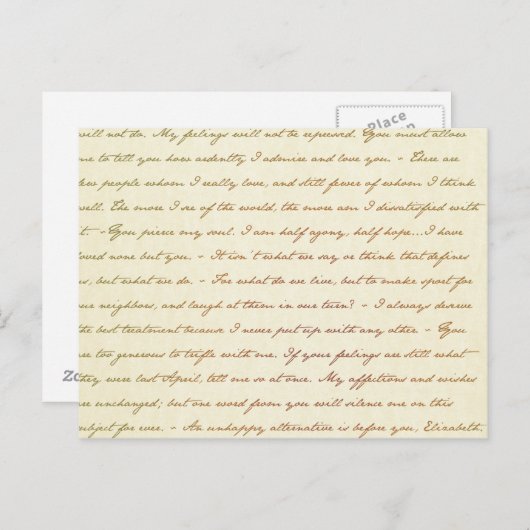 Place
will not do. My feelings will not be repressed. You must allow
me to tell you how ardently I admire and love you. ~ There are
few people whom I really love, and still fewer of whom I think
well. The more I see of the world, the more am I dissatisfied with
it. ~ You pierce my soul. I am half agony, half hope...I have
loved none but you. ~ It isn't what we say or think that defines
us, but what we do. ~ For what do we live, but to make sport for
our neighbors, and laugh at them in our turn? ~ I always deserve
the best treatment because I never put up with any other. ~ You
are too generous to trifle with me. If your feelings are still what
they were last April, tell me so at once. My affections and wishes
are unchanged; but one word from you will silence me on this
subject for ever. ~ An unhappy alternative is before you, Elizabeth.